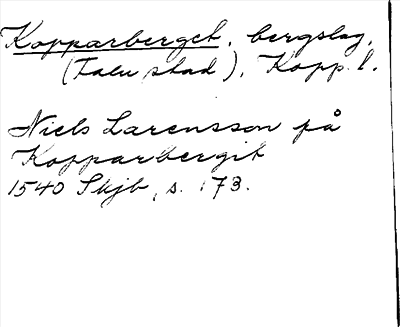 Kopparberget, bergslag,
(Falu stad), Kopp. l.
Niels Larensson på
Kopparbergit
1540 Skjb, s. 173.